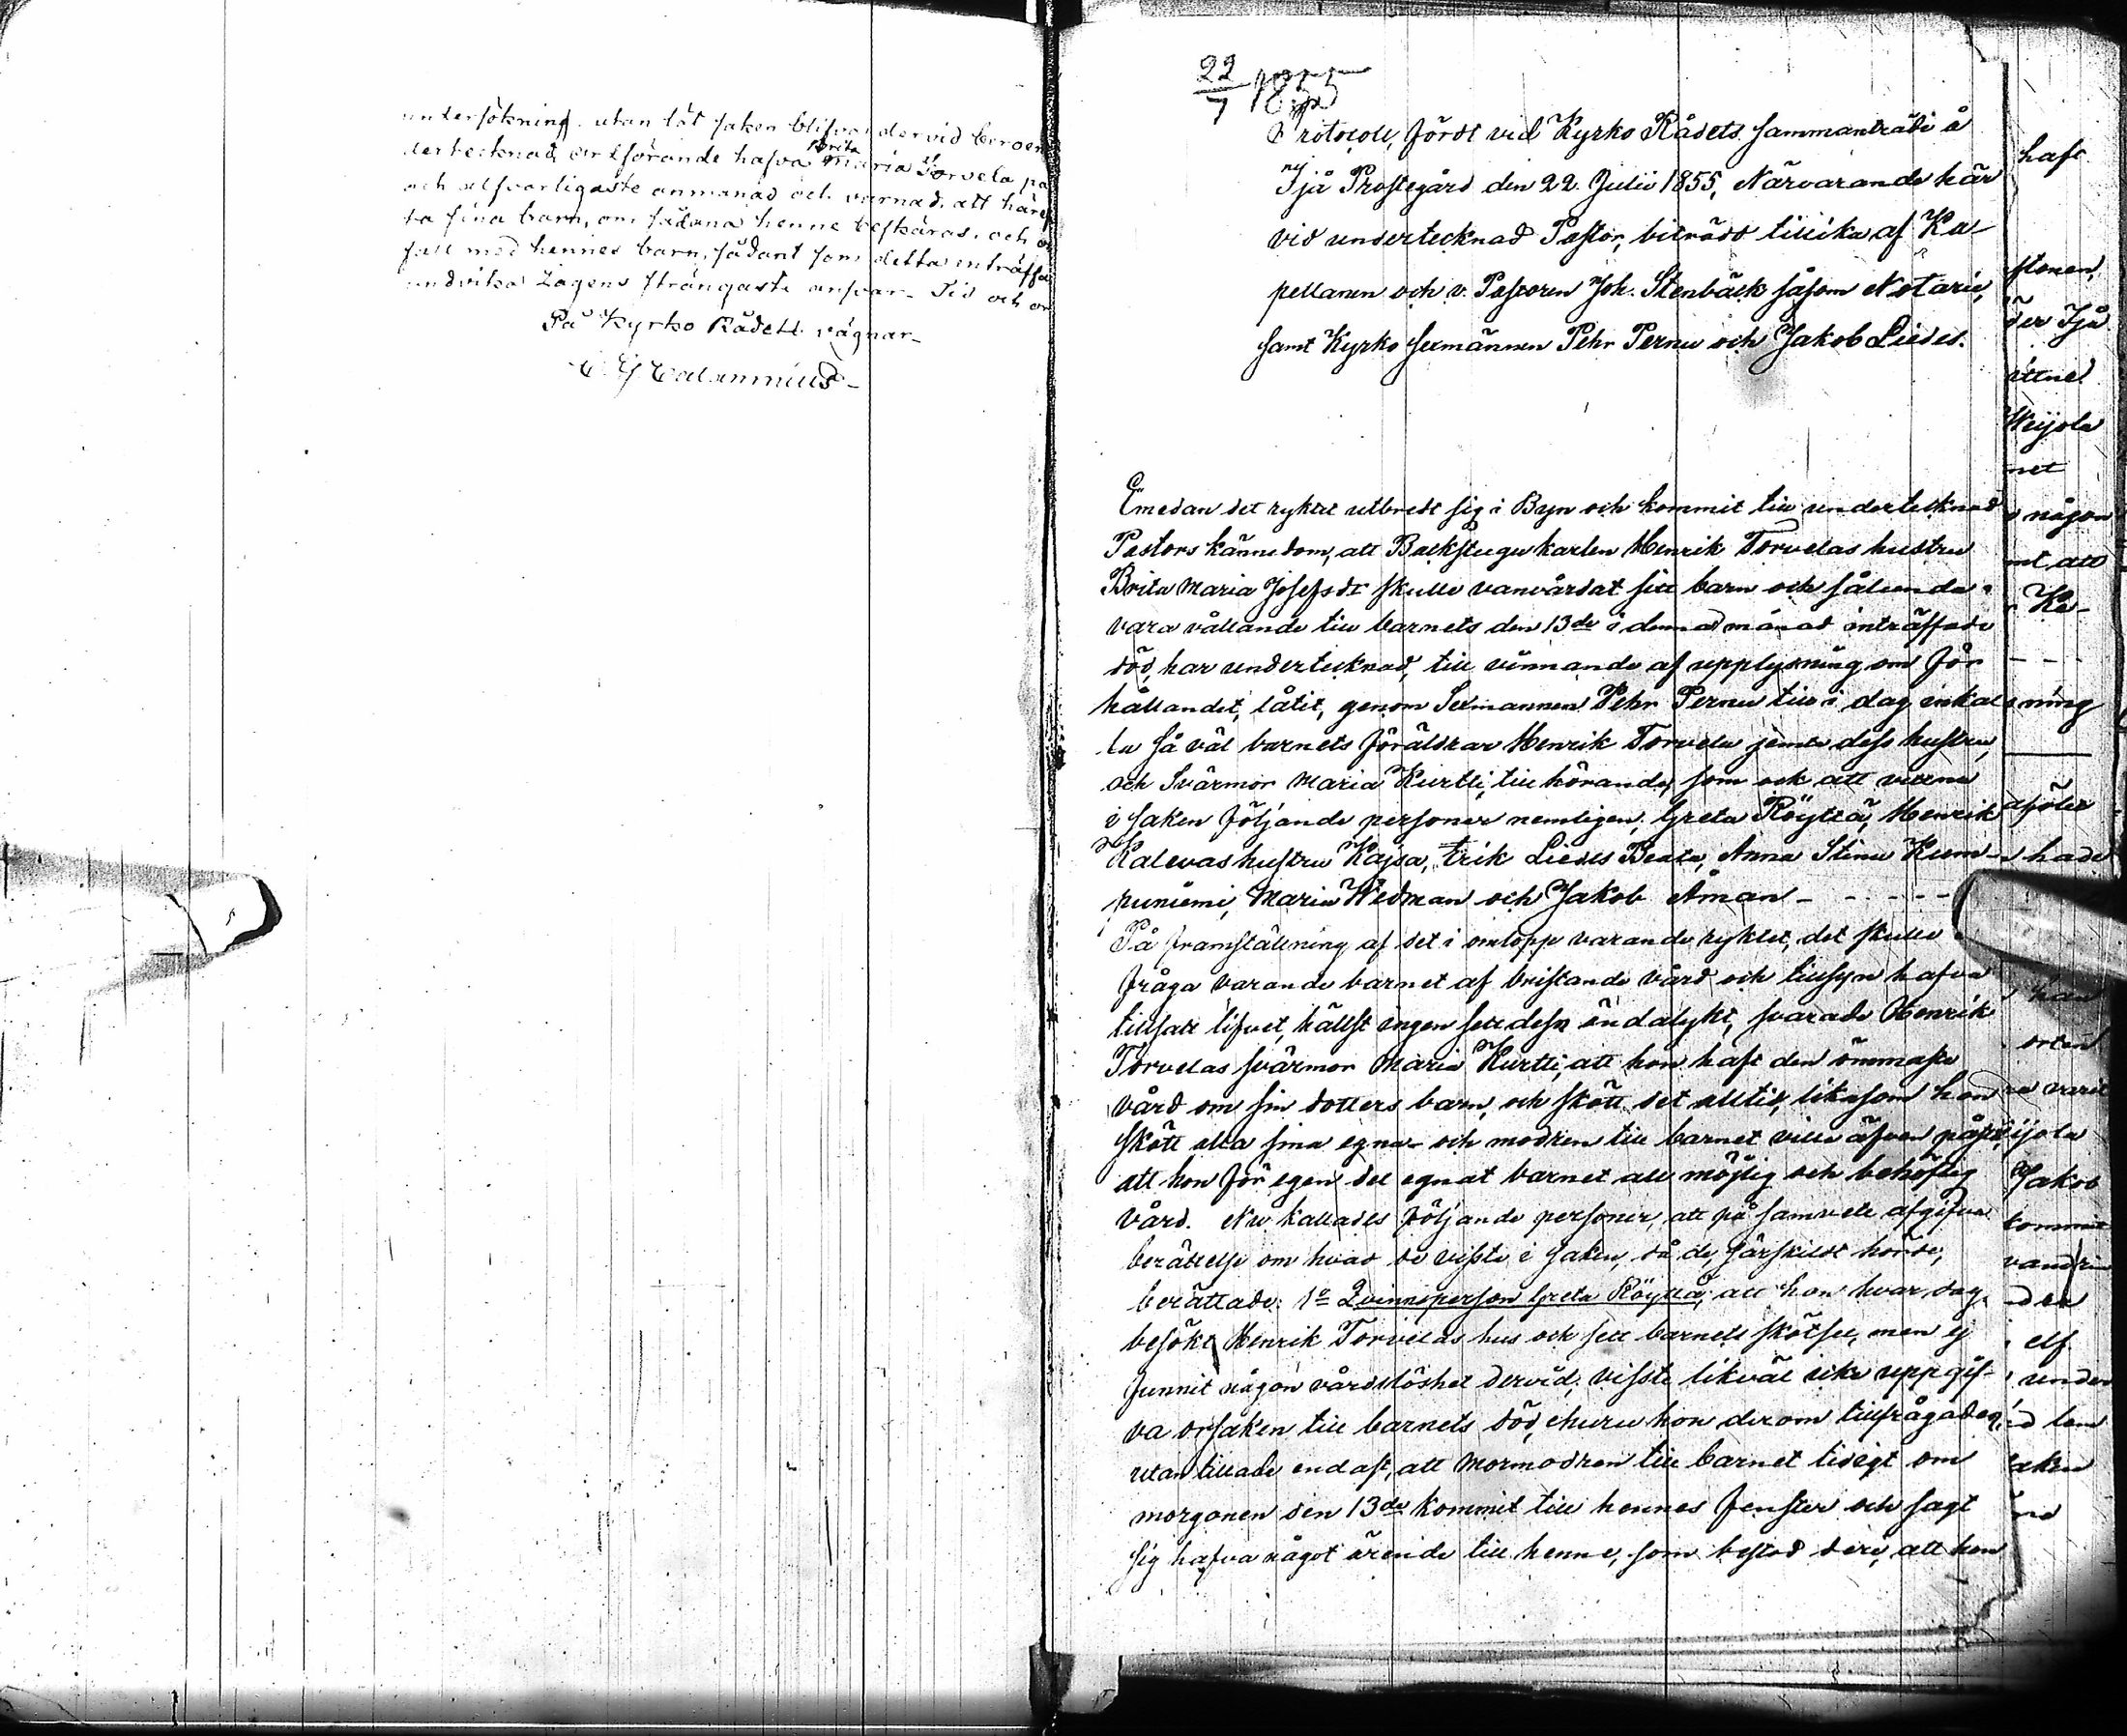 undersökning. utan lät saken blifva dervid beroen
dertecknad ordförande hafva Brita Maria Torvela på
och alfvarligaste anmanad och varnad, att häref
ta sina barn, om sådana henne beskäras, och
fall med hennes barn, sådant som detta inträffa
undvika Lagens strängaste ansvar. Tid och or
På Kyrko Rådets vägnar
22/7 1855
Protocoll, fördt vid Kyrko Rådets sammanträde å
Ijå Prostegård den 22 Julii 1855, Närvarande här
vid undertecknad Pastor, biträdd tillika af Ka-
pellanen och v. Pastoren Joh. Stenbäck såsom Notarie,
samt Kyrko Sexmännen Pehr Pernu och Jakob Liedes.
Emedan det ryktet utbredt sig i Byn och kommit till undertecknad
Pastors kännedom, att Backstugu karlen Henrik Torvelas hustru
Brita Maria Josefsdr skulle vanvårdat sitt barn och sålunda
vara vållande till barnets den 13de i denna månad inträffade
död, har undertecknad, till vinnande af upplysning om för
hållandet, låtit, genom Sexmannen Pehr Pernu till i dag inkal
la så väl barnets föräldrar Henrik Torvela jemte dess hustru,
och Svärmor Maria Kurtti, till hörande, som ock att vittna
i saken följande personer nemligen: Greta Röyttä, Henrik
Kalevas hustru Kajsa, Erik Liedes Beata, Anna Stina Kum-
puniemi, Maria Widman och Jakob Åman - - - - -
På framställning af det i omlopp varande ryktet, det skulle
fråga varande barnet af bristande vård och tillsyn hafva
tillsatt lifvet, hällst ingen sett dess ändalykt, svarade Henrik
Torvelas svärmor Maria Kurtti, att hon haft den ömmaste
vård om sin dotters barn, och skött det alltid, likasom hon
skött alla sina egna - och modren till barnet ville äfven påstå,
att hon för egen del egnat barnet all möjlig och behöflig
vård. Nu kallades följande personer, att på samvete afgifva
berättelse om hvad de visste i saken, då de, särskildt hörde,
berättade: 1o Qvinnsperson Greta Röyttä, att hon hvar dag
besökt Henrik Torvelas hus och sett barnets skötsel, men ej
funnit någon vårdslöshet dervid, visste likväl icke uppgif-
va orsaken till barnets död, ehuru hon derom tillfrågades,
utan tillade endast, att mormodren till barnet tidigt om
morgonen den 13de kommit till hennes fenster och sagt
sig hafva något ärende till henne, som bestod deri, att hon
haft
der Ijå
net
någon
att
ning
hade
han
orten
varit
Jakob
kommit
elf
under